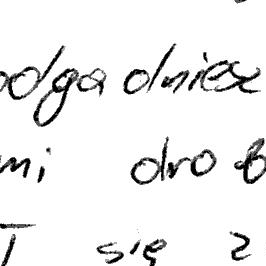 odgadniesz
mi drob
I się z